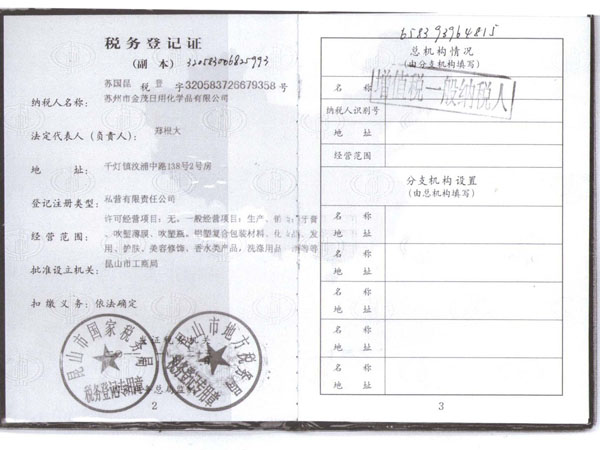 税务登记证
(副 本) 32058300682S993
苏国昆 税 登 字320583726679358 号
纳税人名称: 苏州市金茂日用化学品有限公司
法定代表人(负责人): 郑根大
地 址: 千灯镇汶浦中路138号2号房
登记注册类型: 私营有限责任公司
许可经营项目:无。一般经营项目:生产、销 牙膏
经营范围: 、吹塑薄膜、吹塑瓶、 塑复合包装材料、化 发
用、护肤、美容修饰、香水类产品,洗涤用品 等
批准设立机关: 昆山市工商局
扣缴义务: 依法确定
昆山市国家税务局
税务登记专用章
昆山市地方税务局
税务登记专用章
总局监制
2
658393964815
总机构情况
(由分支机构填写)
名 称
增值税一般纳税人
纳税人识别号
地 址
经营范围
分支机构设置
(由总机构填写)
名 称
地 址
名 称
地 址
名 称
地 址
名 称
地 址
名 称
地 址
3